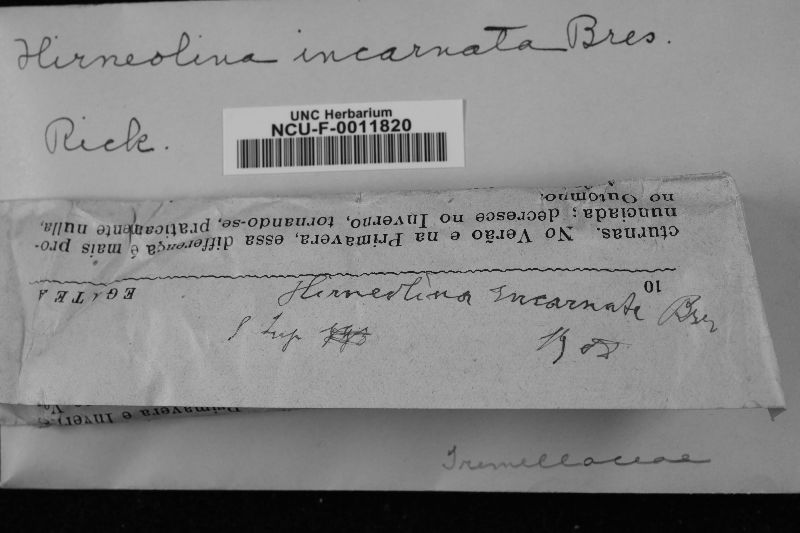 Hirneolina incarnata Bres.
Rick.
UNC Herbarium
NCU-F-0011820
cturnas. No Verão e na Primavera, essa differença é mais pro-
nunciada; decresce no Inverno, tornando-se, praticamente nulla,
no Outomno.
10
EGATEA
Hirneolina incarnata Bres
S Lup
1908
Primavera e Inver
Tremellaceae